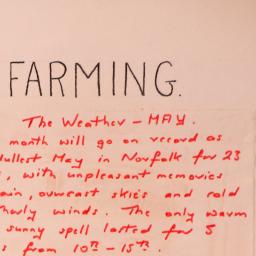 FARMING.
The Weather – MAY.
month will go on record as
dullest May in Norfolk for 23
, with unpleasant memories
ain, overcast skies and cold
herly winds. The only warm
sunny spell lasted for 5
s from 10TH – 15TH.